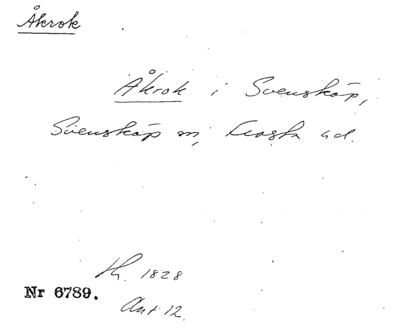 Åkrok
Åkrok i Svensköp,
Svensköp sn, Frosta hd.
th. 1828
Nr 6789.
Ant. 12.